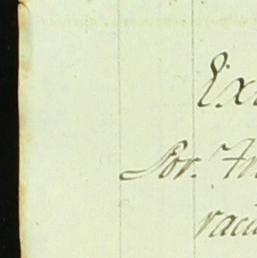 Ex
Sor. Fr
racu